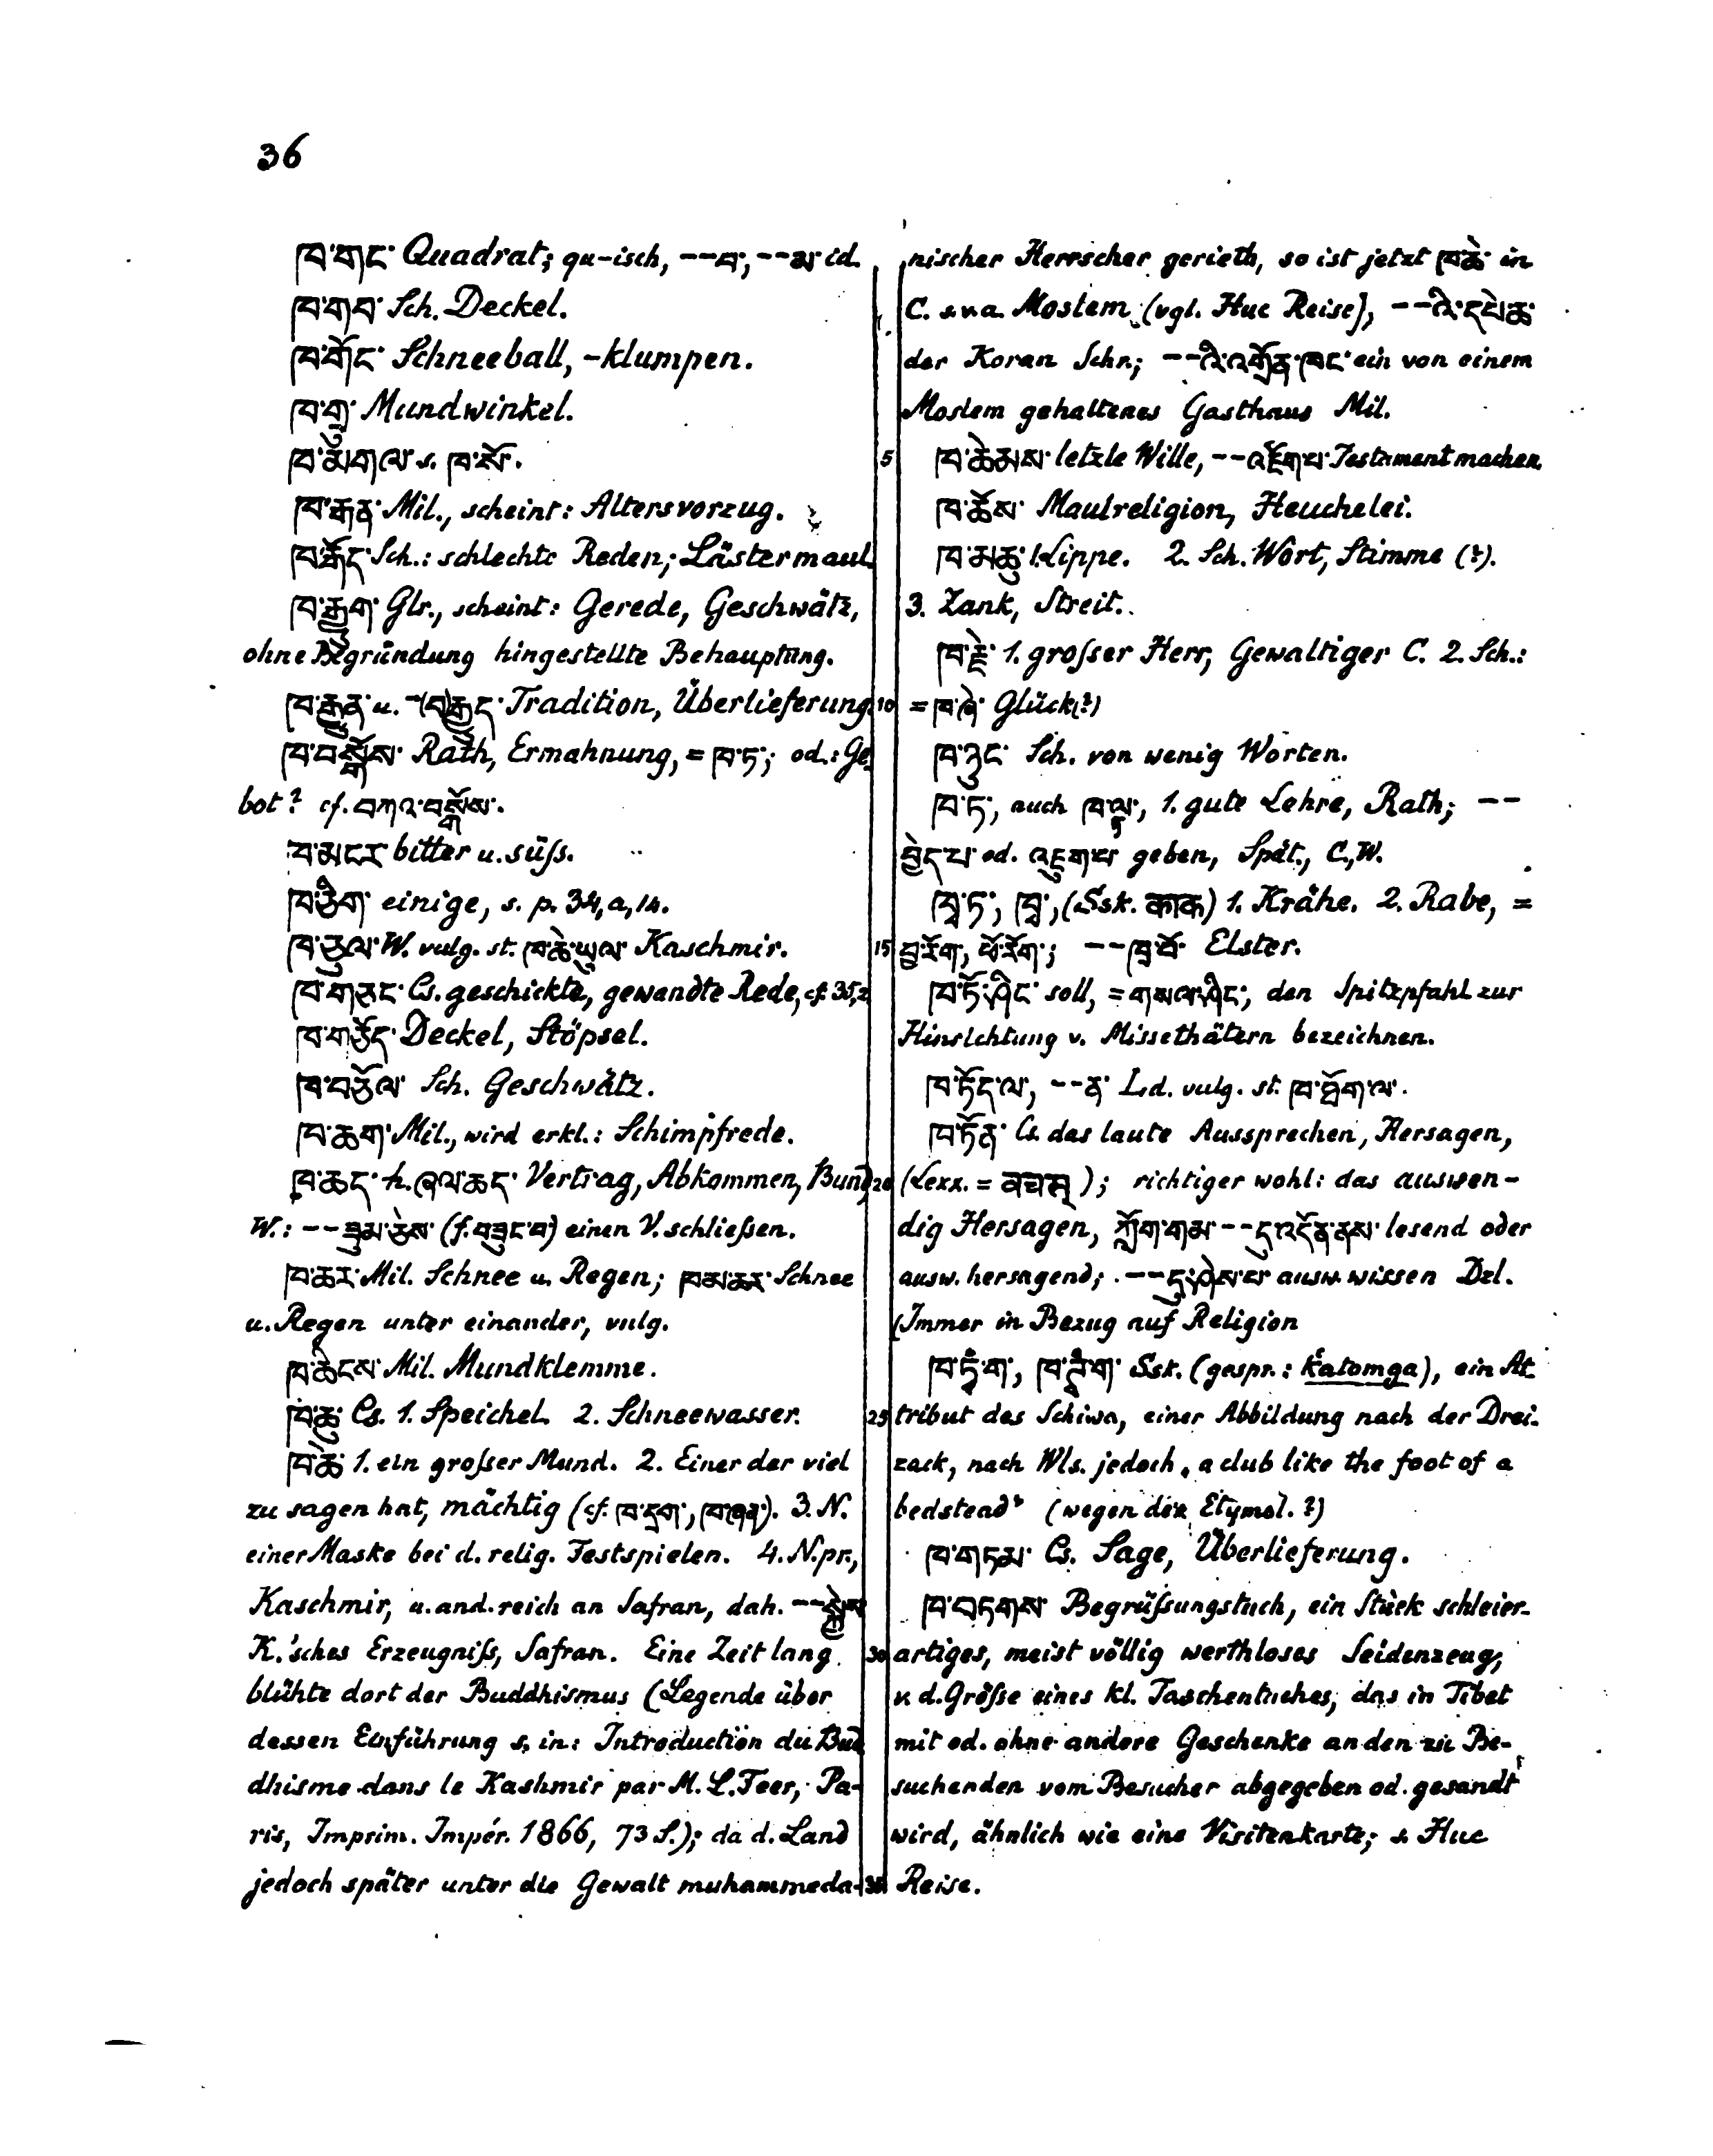 36
ཁ་གང་ Quadrat; qu-isch, --བ་, --མ་ id.
ཁ་གབ་ Sch. Deckel.
ཁ་གོང་ Schneeball, -klumpen.
ཁ་གྲུ་ Mundwinkel.
s. ཁ་སོ་.
ཁ་རྒན་ Mil., scheint: Altersvorzug.
ཁ་རྒོད་ Sch.: schlechte Reden; Lästermaul.
ཁ་རྒྱུག་ Glr., scheint: Gerede, Geschwätz,
ohne Begründung hingestellte Behauptung.
ཁ་རྒྱུན་ u. -(བ)རྒྱུད་ Tradition, Überlieferung.
ཁ་བསྒོས་ Rath, Ermahnung, = ཁ་ཏ་; od.: Ge-
bot? cf. བཀའ་བསྒོས་.
ཁ་མངར་ bitter u. süſs.
ཁ་ཅིག་ einige, s. p. 34, a, 14.
ཁ་ཅུལ་ W. vulg. st. ཁ་ཆེ་ཡུལ་ Kaschmir.
ཁ་གཅང་ Cs. geschickte, gewandte Rede, cf. 35,2
ཁ་གཅོད་ Deckel, Stöpsel.
ཁ་བཅོལ་ Sch. Geschwätz.
ཁ་ཆག་ Mil., wird erkl.: Schimpfrede.
ཁ་ཆད་ h. ཞལ་ཆད་ Vertrag, Abkommen, Bund
W.: -- ཟུམ་ཅེས་ (f. བཟུང་བ) einen V. schlieſsen.
ཁ་ཆར་ Mil. Schnee u. Regen; ཁ་མ་ཆར་ Schnee
u. Regen unter einander, vulg.
ཁ་ཆིངས་ Mil. Mundklemme.
ཁ་ཆུ་ Cs. 1. Speichel. 2. Schneewasser.
ཁ་ཆེ་ 1. ein groſser Mund. 2. Einer der viel
zu sagen hat, mächtig (cf. ཁ་དྲག་, ཁ་ཞན་). 3. N.
einer Maske bei d. relig. Festspielen. 4. N. pr.,
Kaschmir, u. and. reich an Safran, dah. --སྐྱེས
K.'sches Erzeugniſs, Safran. Eine Zeit lang
blühte dort der Buddhismus (Legende über
dessen Einführung s. in: Introduction du Bud-
dhisme dans le Kashmir par M. L. Feer, Pa-
ris, Imprim. Impér. 1866, 73 S.); da d. Land
jedoch später unter die Gewalt muhammeda-
nischer Herrscher gerieth, so ist jetzt ཁ་ཆེ་ in
C. s.v.a. Moslem (vgl. Huc Reise), --འི་དཔེ་ཆ་
der Koran Schr.; --འི་འགྲོན་ཁང་ ein von einem
Moslem gehaltenes Gasthaus Mil.
5 ཁ་ཆེམས་ letzte Wille, --འཇོག་པ་ Testament machen
ཁ་ཆོས་ Maulreligion, Heuchelei.
ཁ་མཆུ་ 1. Lippe. 2. Sch. Wort, Stimme (?).
3. Zank, Streit.
ཁ་རྗེ་ 1. groſser Herr, Gewaltiger C. 2. Sch.:
10 = ཁ་ཞེ་ Glück (?)
ཁ་ཉུང་ Sch. von wenig Worten.
ཁ་ཏ་, auch 1. gute Lehre, Rath; --
བྱེད་པ་ od. འཇུག་པ་ geben, Spät., C., W.
ཁྭ་ཏ་, ཁྭ་, (Ssk. काक) 1. Krähe. 2. Rabe, =
15 བྱ་རོག་, ཕོ་རོག་; -- ཁྲ་བོ་ Elster.
ཁ་ཏོ་ཤིང་ soll, = གསལ་ཤིང་, den Spitzpfahl zur
Hinrichtung v. Missethätern bezeichnen.
ཁ་ཏོད་ལ་, --ན་ Ld. vulg. st. ཁ་ཐོག་ལ་.
ཁ་ཏོན་ Cs. das laute Aussprechen, Hersagen,
20 (Lexx. = ); richtiger wohl: das auswen-
dig Hersagen, ཀློག་གམ་ --དུ་འདོན་ནས་ lesend oder
ausw. hersagend; --དུ་ཤེས་པ་ ausw. wissen Dzl.
(Immer in Bezug auf Religion
ཁ་ཊྭཾ་ག་, Ssk. (gespr.: k̀atomga), ein At-
25 tribut des Schiwa, einer Abbildung nach der Drei-
zack, nach Wls. jedoch „a club like the foot of a
bedstead“ (wegen der Etymol. ?)
ཁ་གཏམ་ Cs. Sage, Überlieferung.
ཁ་བཏགས་ Begrüſsungstuch, ein Stück schleier-
30 artiges, meist völlig werthloses Seidenzeug,
v. d. Gröſse eines kl. Taschentuches, das in Tibet
mit od. ohne andere Geschenke an den zu Be-
suchenden vom Besucher abgegeben od. gesandt
wird, ähnlich wie eine Visitenkarte; s. Huc
35 Reise.